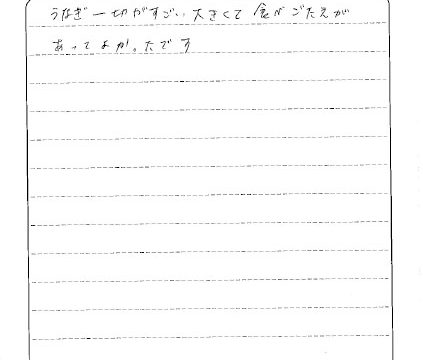 うなぎ一切がすごい大きくて食べごたえが
あってよかったです